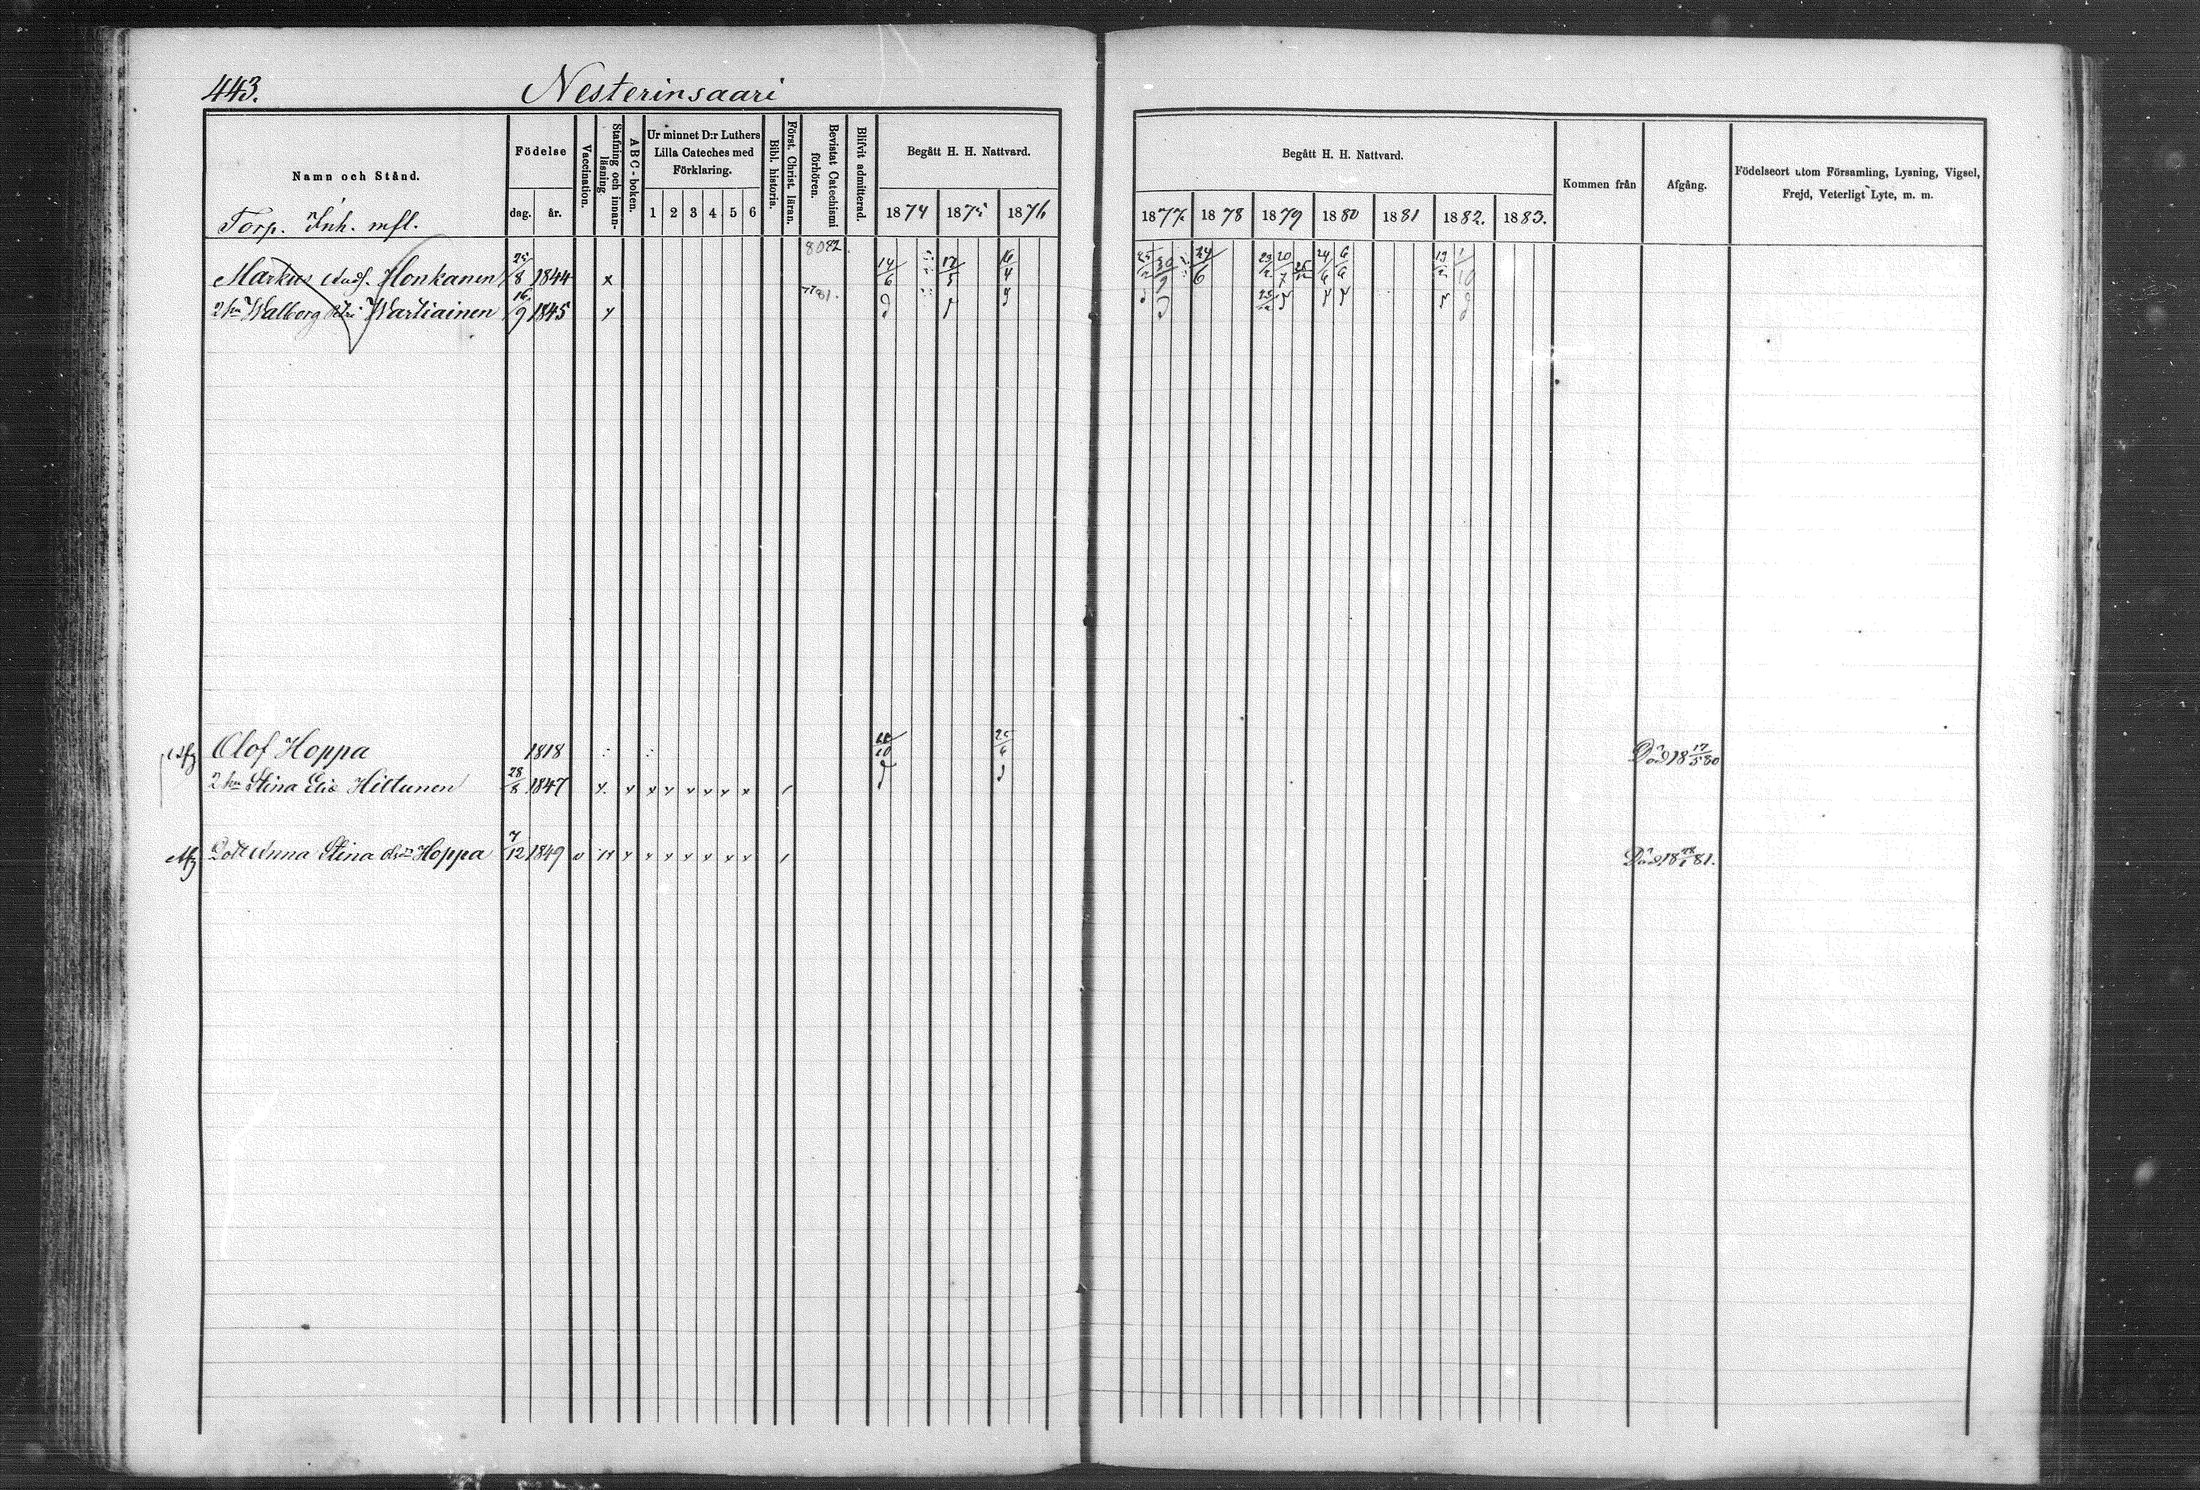 443. Nesterinsaari
Namn och Stånd.
Födelse
dag. år.
Vaccination.
Stafning och innan-läsning
ABC-boken.
Ur minnet D:r Luthers Lilla Cateches med Förklaring.
1 2 3 4 5 6
Bibl. historia.
Först. Christ. läran.
Bevistat Catechismi förhören.
Blifvit admitterad.
Begått H. H. Nattvard.
1874 1875 1876
Begått H. H. Nattvard.
1877. 1878 1879 1880 1881 1882. 1883.
Kommen från
Afgång.
Födelseort utom Församling, Lysning, Vigsel,
Frejd, Veterligt Lyte, m. m.
Torp. Inh. mfl.
8082.
Markus Andf. Honkanen 25/8 1844 x 14/6 17/5 16/4 30/9 24/6 23/2 20/7 24/6 6/6 19/2 1/10
7781.
2 hu Walborg Wartiainen 16/9 1845 x
Olof Hoppa 1818 10 25/6 Död 18 17/5 80
2 hu Stina Eliæ Hiltunen 28/8 1847 x x x x x x x x
Dott Anna Stina Hoppa 7/12 1849 v x x x x x x x Död 18 81.